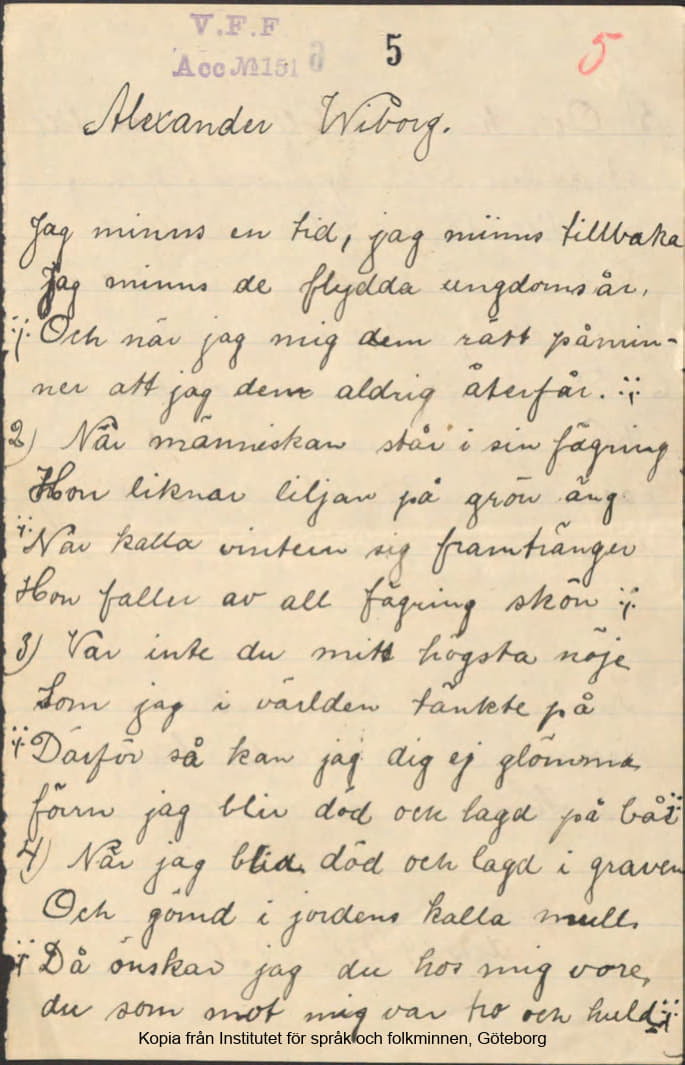 V.F.F
Acc № 151 6 5 5
Alexander Wiborg.
Jag minns en tid, jag minns tillbaka
Jag minns de flydda ungdomsår,
:/: Och när jag mig dem rätt påmin-
ner att jag dem aldrig återfår. :/:
2) När människan står i sin fägring
Hon liknar liljan på grön äng
:/: När kalla vintern sig framtränger
Hon faller av all fägring skön :/:
3) Var inte du mitt högsta nöje
Som jag i världen tänkte på
:/: Därför så kan jag dig ej glömma
förrn jag blir död och lagd på bår :/:
4) När jag blid död och lagd i graven
Och gömd i jordens kalla mull.
:/: Då önskar jag du hos mig vore,
du som mot mig var tro och huld :/:
Kopia från Institutet för språk och folkminnen, Göteborg